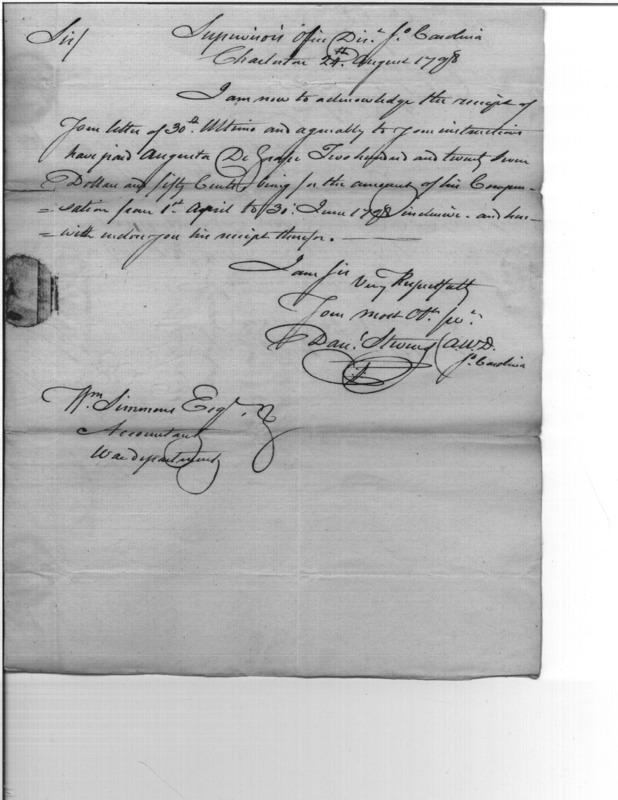 Sir/ Supervisor's Office Dist. So. Carolina
Charleston 24th. August 1798
I am now to acknowledge the receipt of
Your letter of 30th. Ultimo and agreeably to your instructions
have paid Augusta De Grasse Two hundred and twenty seven
Dollars and fifty Cents, being for the amount of his Compen-
=sation from 1st. April to 30. June 1798 inclusive - and here-
=with inclose you his receipt therefor.
I am Sir
Very Respectfully
Your most Obt. Sert.
Danl. Stevens AWD.
So. Carolina
Wm. Simmons Esqr.
Accountant
War department